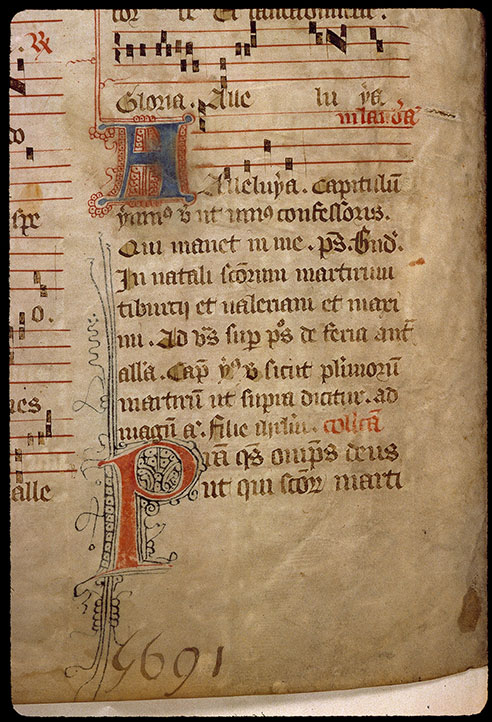 Gloria. Alle lu ya
Alleluya. Capitulũ
ymnꝰ v̄ ut uniꝰ confessoris.
Qui manet in me. ps̄.
In natali sc̄orum martirum
tiburcij et ualeriani et maxi
mi. Ad vs̄ sup ps̄ de feria ant̄
all'a. Cap̄ v̄ sicut plimorũ
martirũ ut supra dicitur. ad
magñ a͞. filie collc̄ã
Pra qs̄ omp̄s deus
ut qui sc̄or̄ marti
spe
o.
alle
5691